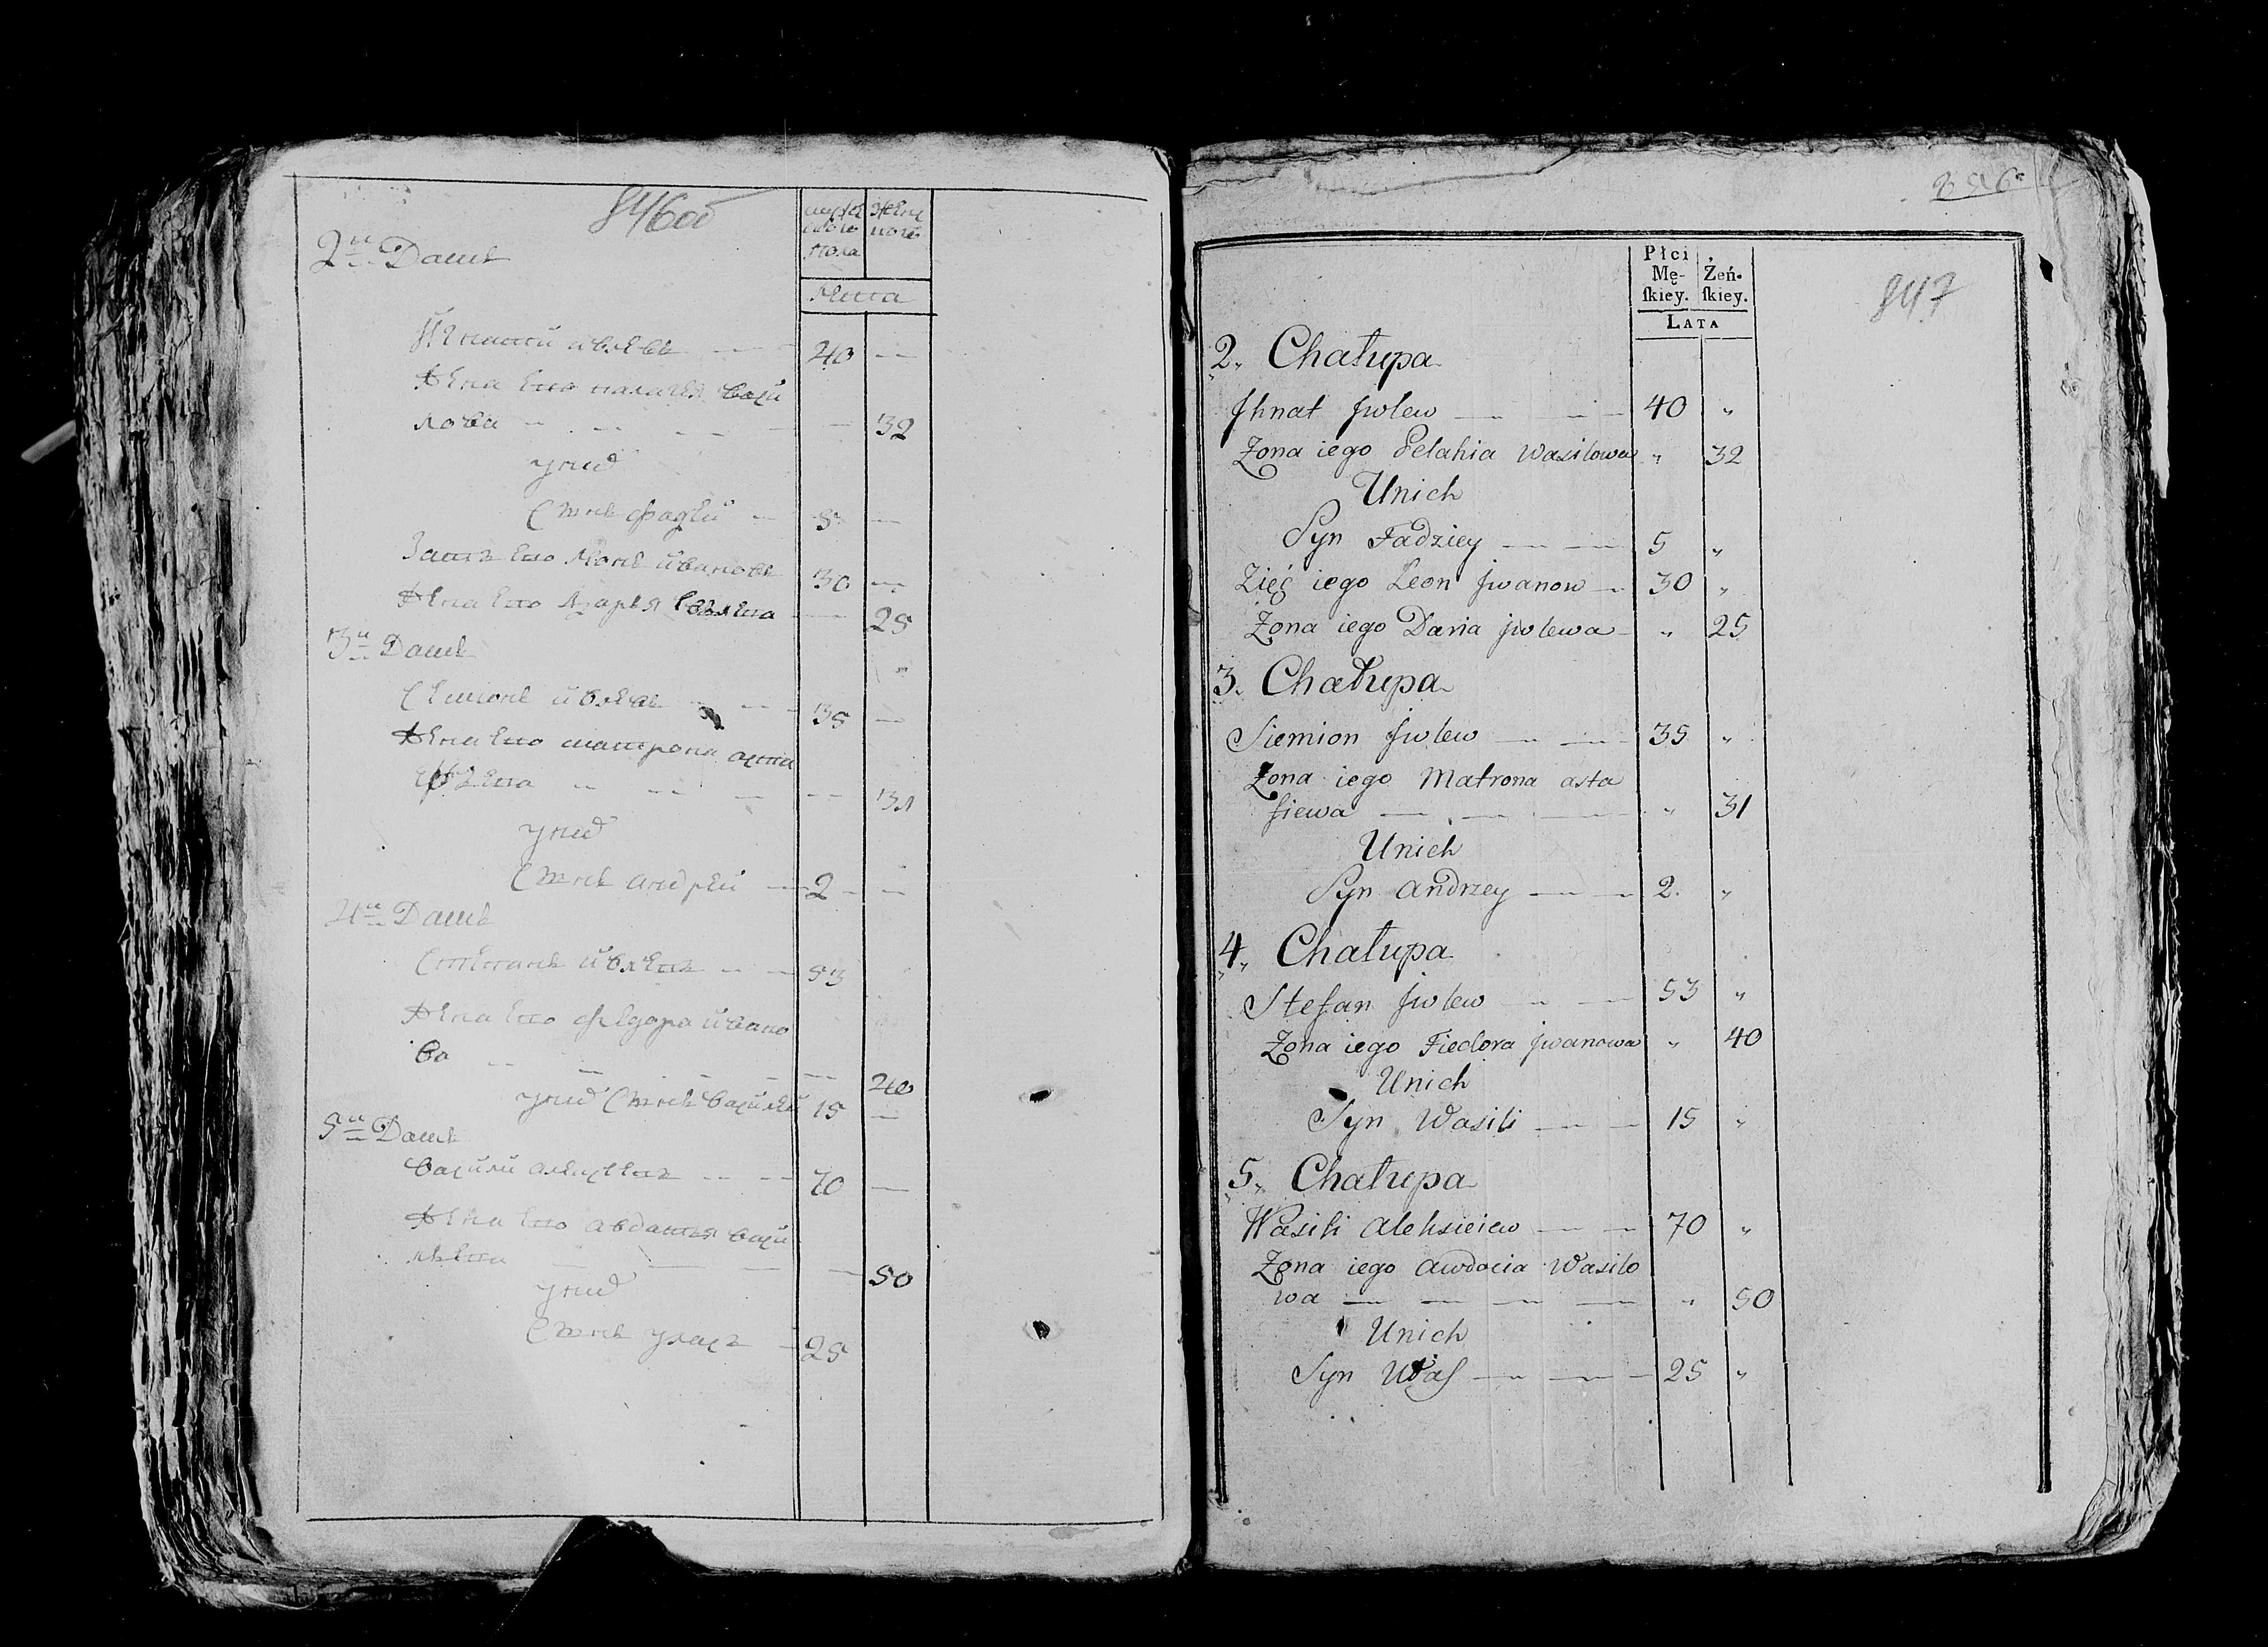 846об
мужеска пола
женска
Лета
2й Домъ
Игнатий Ивлевъ 40
Жена ево Палагея Васи
лова 32
у них
Сынъ Фадей 5
Зять ево Леонъ Ивановъ 30
Жена ево Дарья 25
3й Домъ
Семионъ Ивлевъ 35
Жена ево Матрона Аста
31
у них
Сынъ Андрей 2
4й Домъ
Степанъ Ивлевъ 53
Жена ево Федора Ивано
ва 40
у них Сынъ Василей 15
5й Домъ
Василий Алексеевъ 70
Жена ево Авдотья Васи
льева 50
у них
Сынъ Уласъ 25
847
Płci Mę-
skiey.
Żeń-
skiey.
LATA
2. Chałupa
Jhnat Jwlew 40 "
Żona iego Pelahia Wasilowa " 32
Unich
Syn Fadziey 5 "
Zięć iego Leon Jwanow 30 "
Żona iego Daria Jwlewa " 25
3. Chałupa
Siemion Jwlew 35 "
Żona iego Matrona Asta
fiewa " 31
Unich
Syn Andrzey 2. "
4. Chałupa
Stefan Jwlew 53 "
Żona iego Fiedora Jwanowa " 40
Unich
Syn Wasili 15 "
5. Chałupa
Wasili Aleksieiew 70 "
Żona iego Awdocia Wasilo
wa " 50
Unich
Syn Ułas 25 "